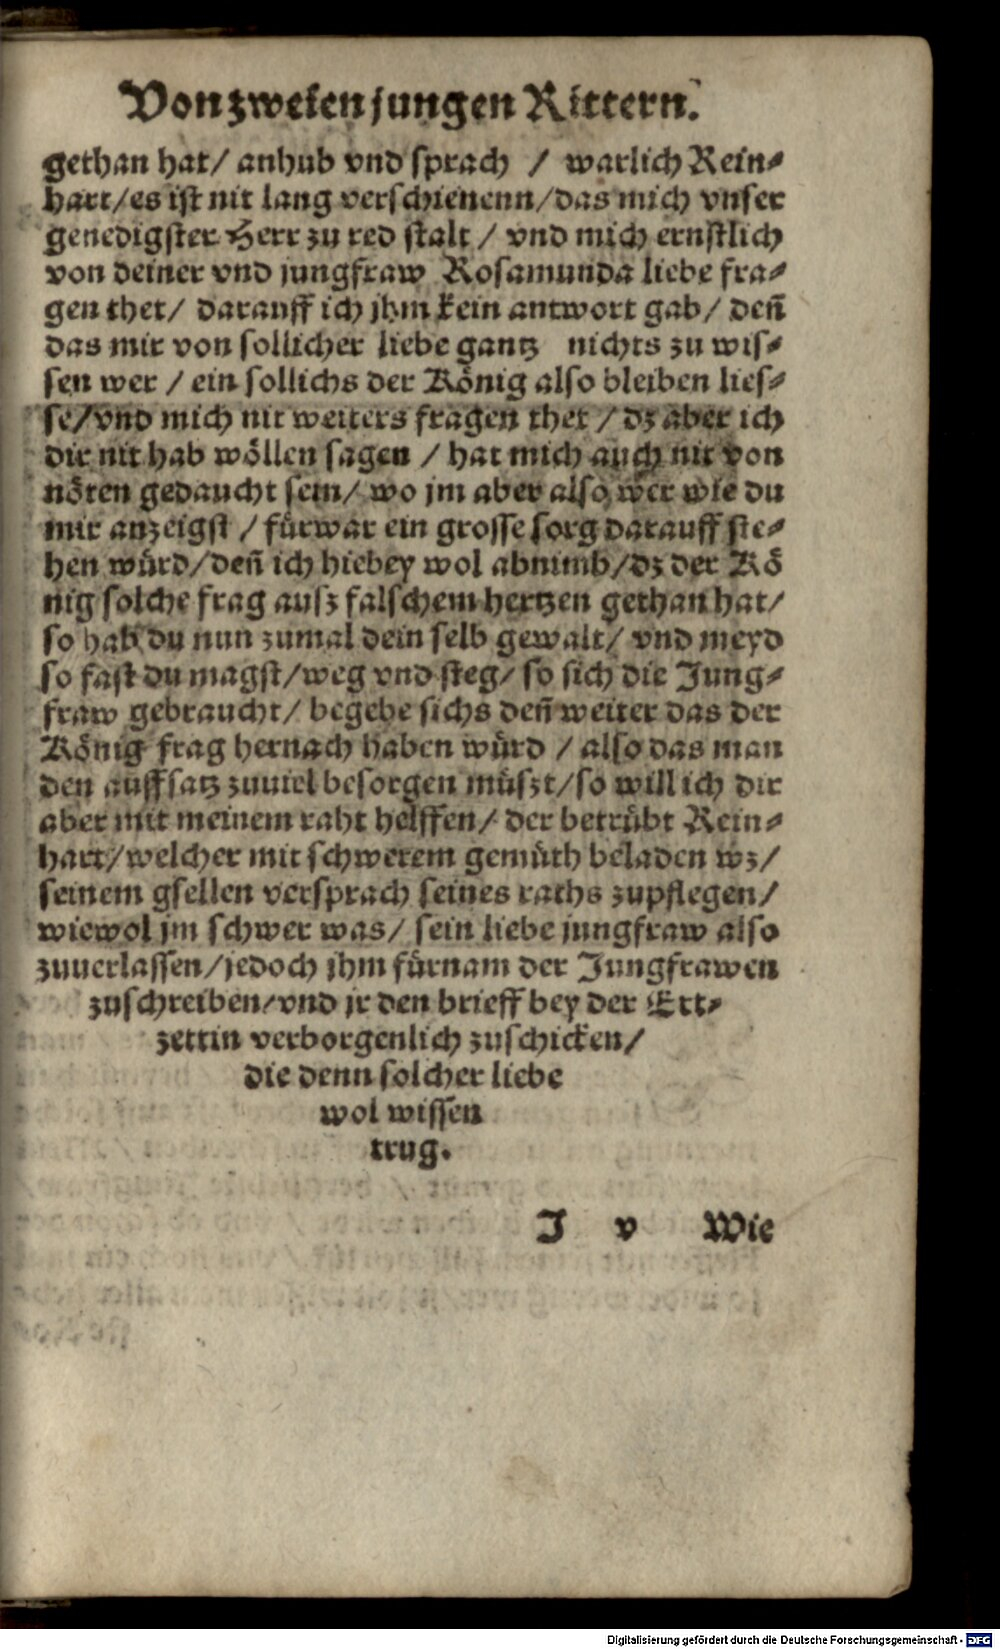 Von zweien jungen Rittern.
gethan hat/ anhub vnd sprach / warlich Rein⸗
hart/es ist nit lang verschienenn/das mich vnser
genedigster Herr zu red stalt / vnd mich ernstlich
von deiner vnd jungfraw Rosamunda liebe fra⸗
gen thet/ darauff ich jhm kein antwort gab/ deñ
das mir von sollicher liebe gantz nichts zu wis⸗
sen wer / ein sollichs der König also bleiben lies⸗
se/vnd mich nit weiters fragen thet / dz aber ich
dir nit hab wöllen sagen / hat mich auch nit von
nöten gedaucht sein/ wo jm aber also wer wie du
mir anzeigst / fürwar ein grosse sorg darauff ste⸗
hen würd/deñ ich hiebey wol abnimb/dz der Kö
nig solche frag ausz falschem hertzen gethan hat/
so hab du nun zumal dein selb gewalt/ vnd meyd
so fast du magst/weg vnd steg/ so sich die Jung⸗
fraw gebraucht/ begebe sichs deñ weiter das der
König frag hernach haben würd / also das man
den auffsatz zuuiel besorgen müszt/so will ich dir
aber mit meinem raht helffen/ der betrübt Rein⸗
hart/welcher mit schwerem gemüth beladen wz/
seinem gsellen versprach seines raths zupflegen/
wiewol jm schwer was/ sein liebe jungfraw also
zuuerlassen/jedoch jhm fürnam der Jungfrawen
zuschreiben/vnd jr den brieff bey der Ert⸗
zettin verborgenlich zuschicken/
die denn solcher liebe
wol wissen
trug.
J v Wie
Digitalisierung gefördert durch die Deutsche Forschungsgemeinschaft - DFG